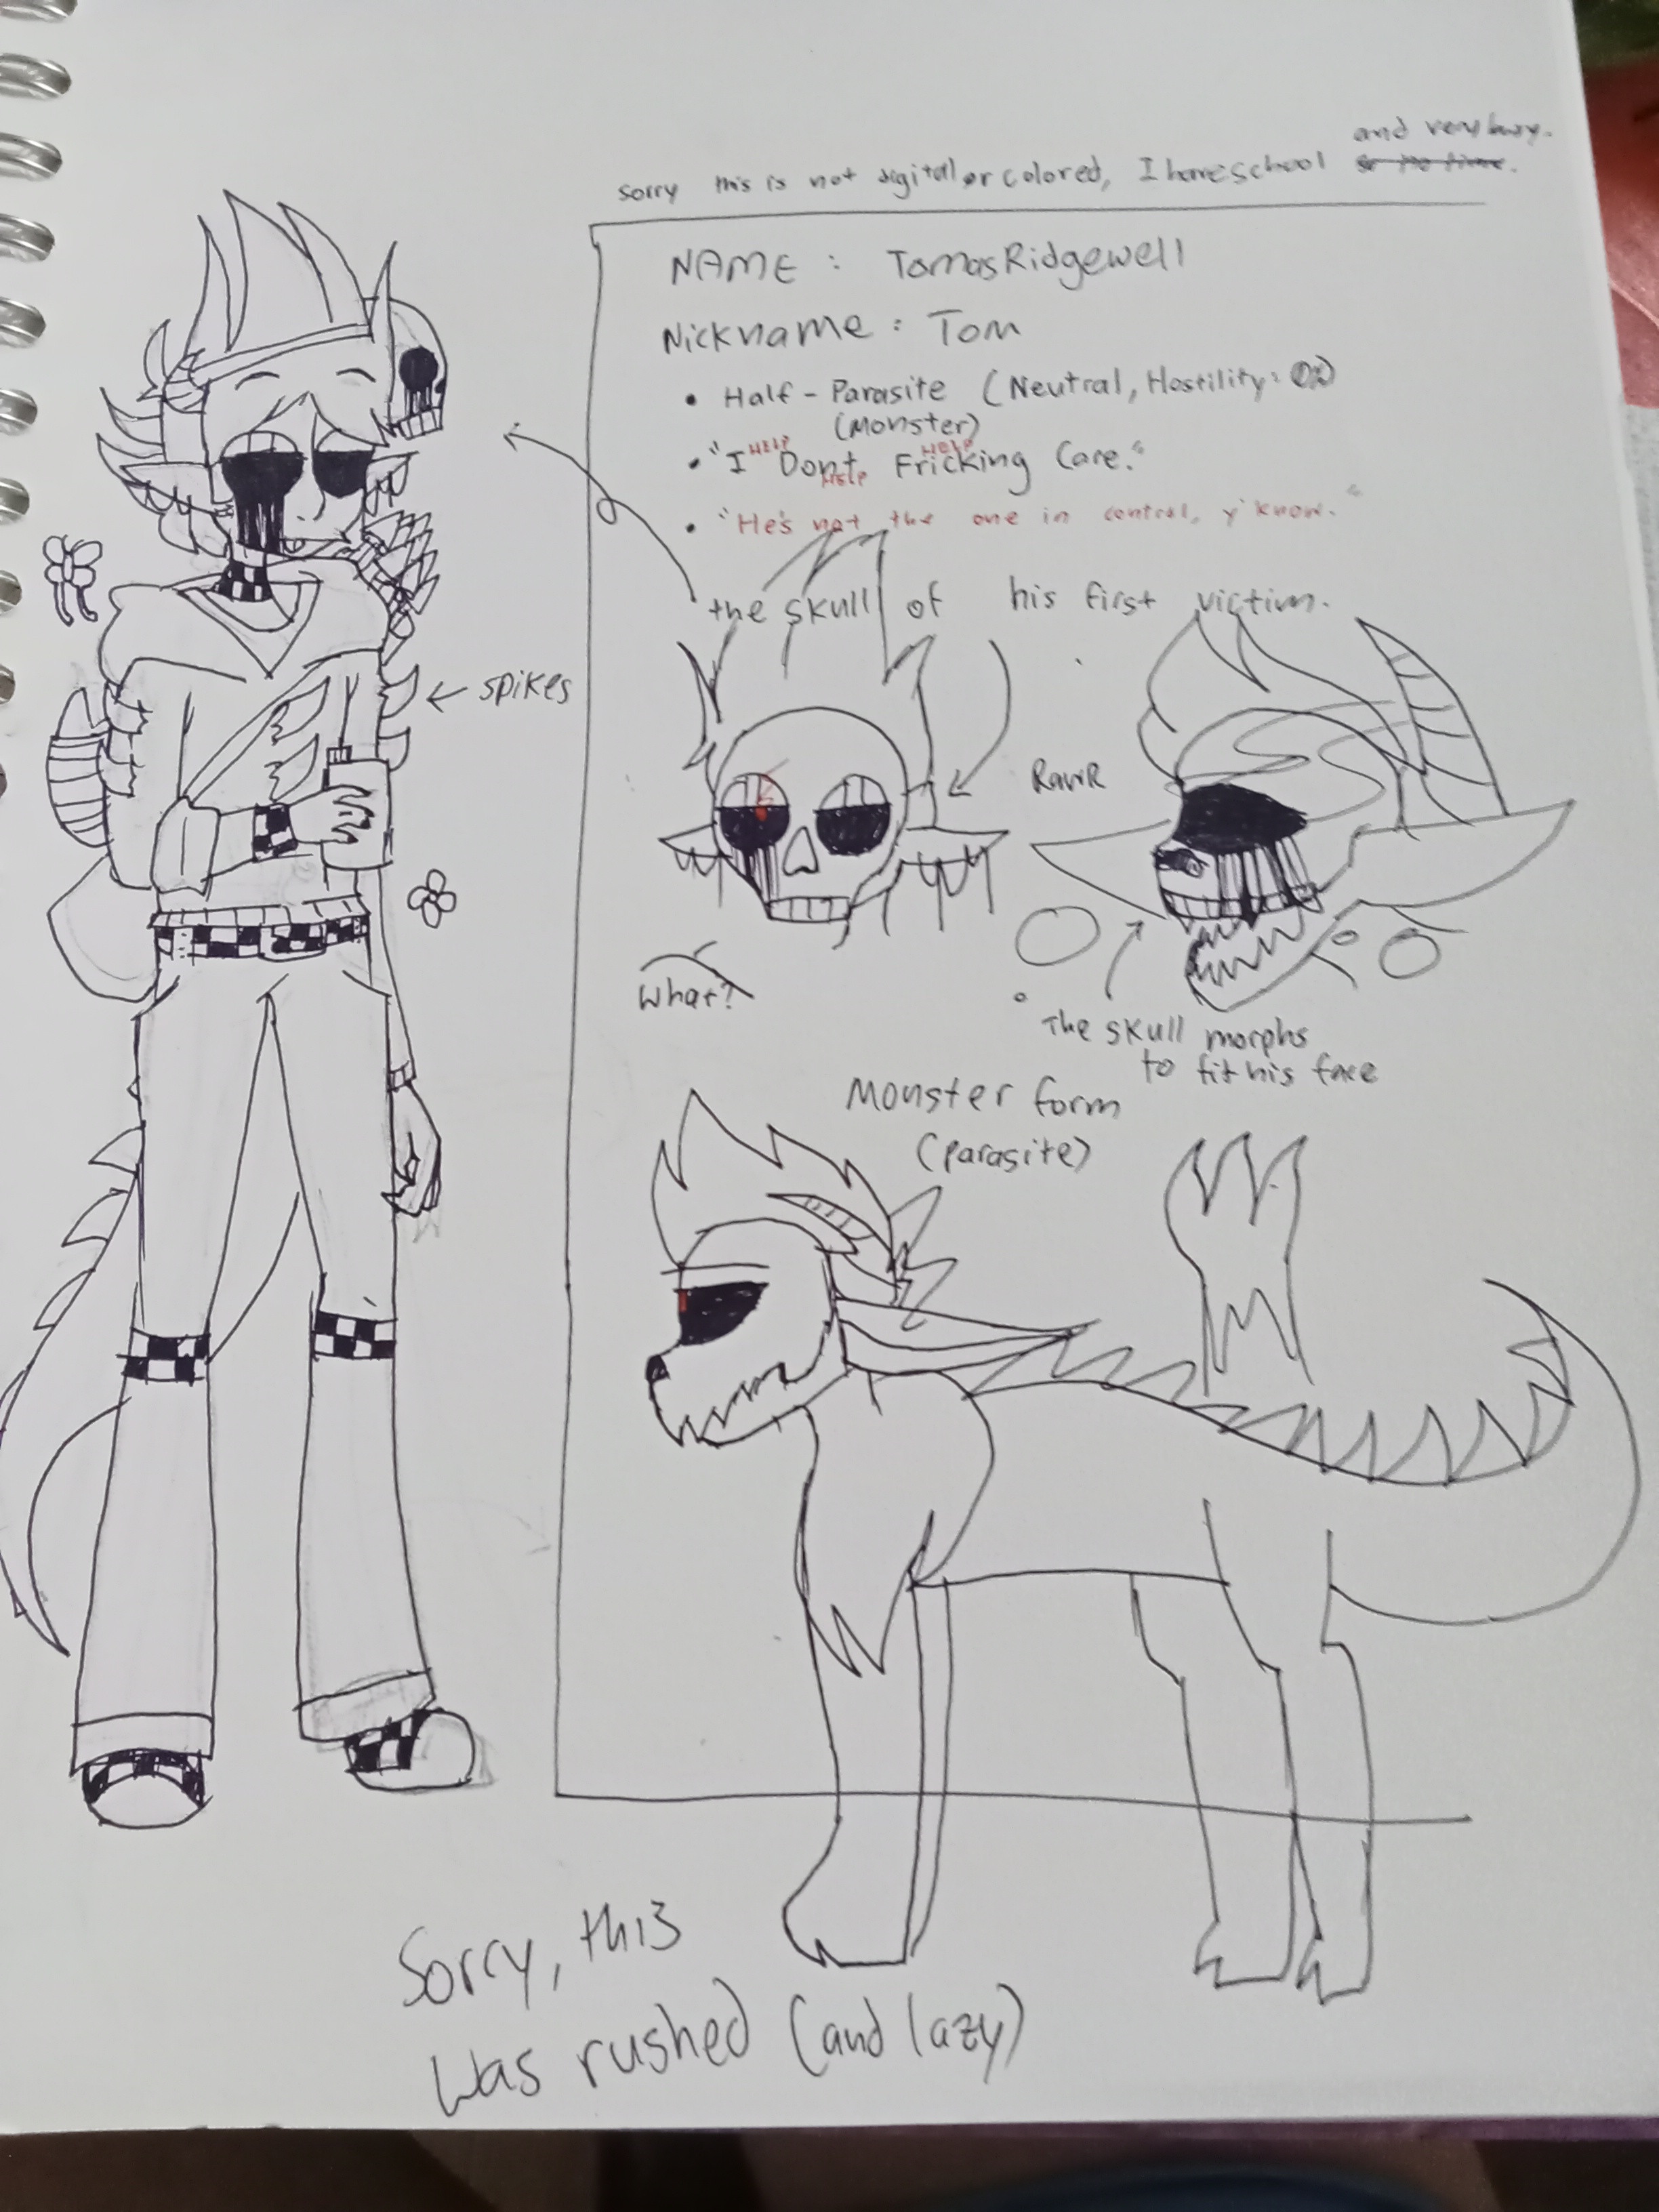 and very busy.
sorry this is not digital or colored, I have school so no time.
NAME : TomasRidgewell
Nickname : Tom
• Half-Parasite (Neutral, Hostility:
(Monster)
HELP HELP
• "I Dont Fricking Care."
HELP
• "He's not the one in control, y'know."
the skull of his first victim.
← spikes
RawR
What?
The skull morphs
to fit his face
Monster form
(parasite)
Sorry, this
was rushed (and lazy)